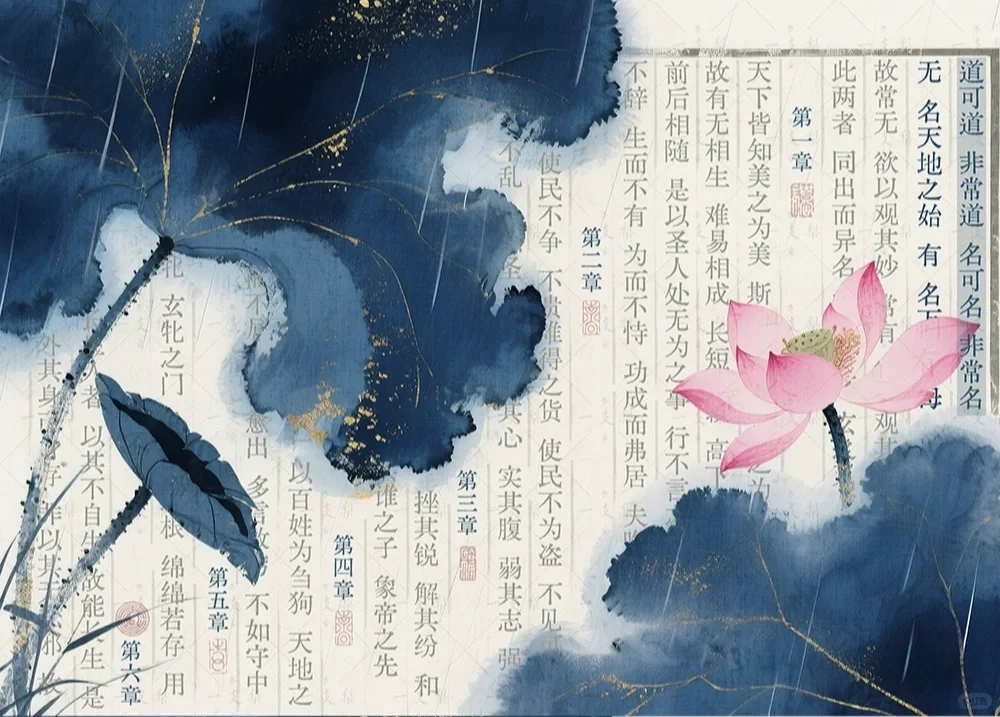 道可道 非常道 名可名 非常名
无 名天地之始 有 名 母
故常无 欲以观其妙 常有 观其
此两者 同出而异名 玄
第一章
天下皆知美之为美 斯 之为
故有无相生 难易相成 长短 高下
前后相随 是以圣人处无为之事 行不言
不辞 生而不有 为而不恃 功成而弗居 夫
第二章
使民不争 不贵难得之货 使民不为盗 不见
不乱 其心 实其腹 弱其志 强
第三章
挫其锐 解其纷 和
谁之子 象帝之先
第四章
以百姓为刍狗 天地之
不屈 愈出 多 不如守中
第五章
牝 玄牝之门 根 绵绵若存 用
第六章
者 以其不自生 故能长生 是
外其身 以其 邪 故